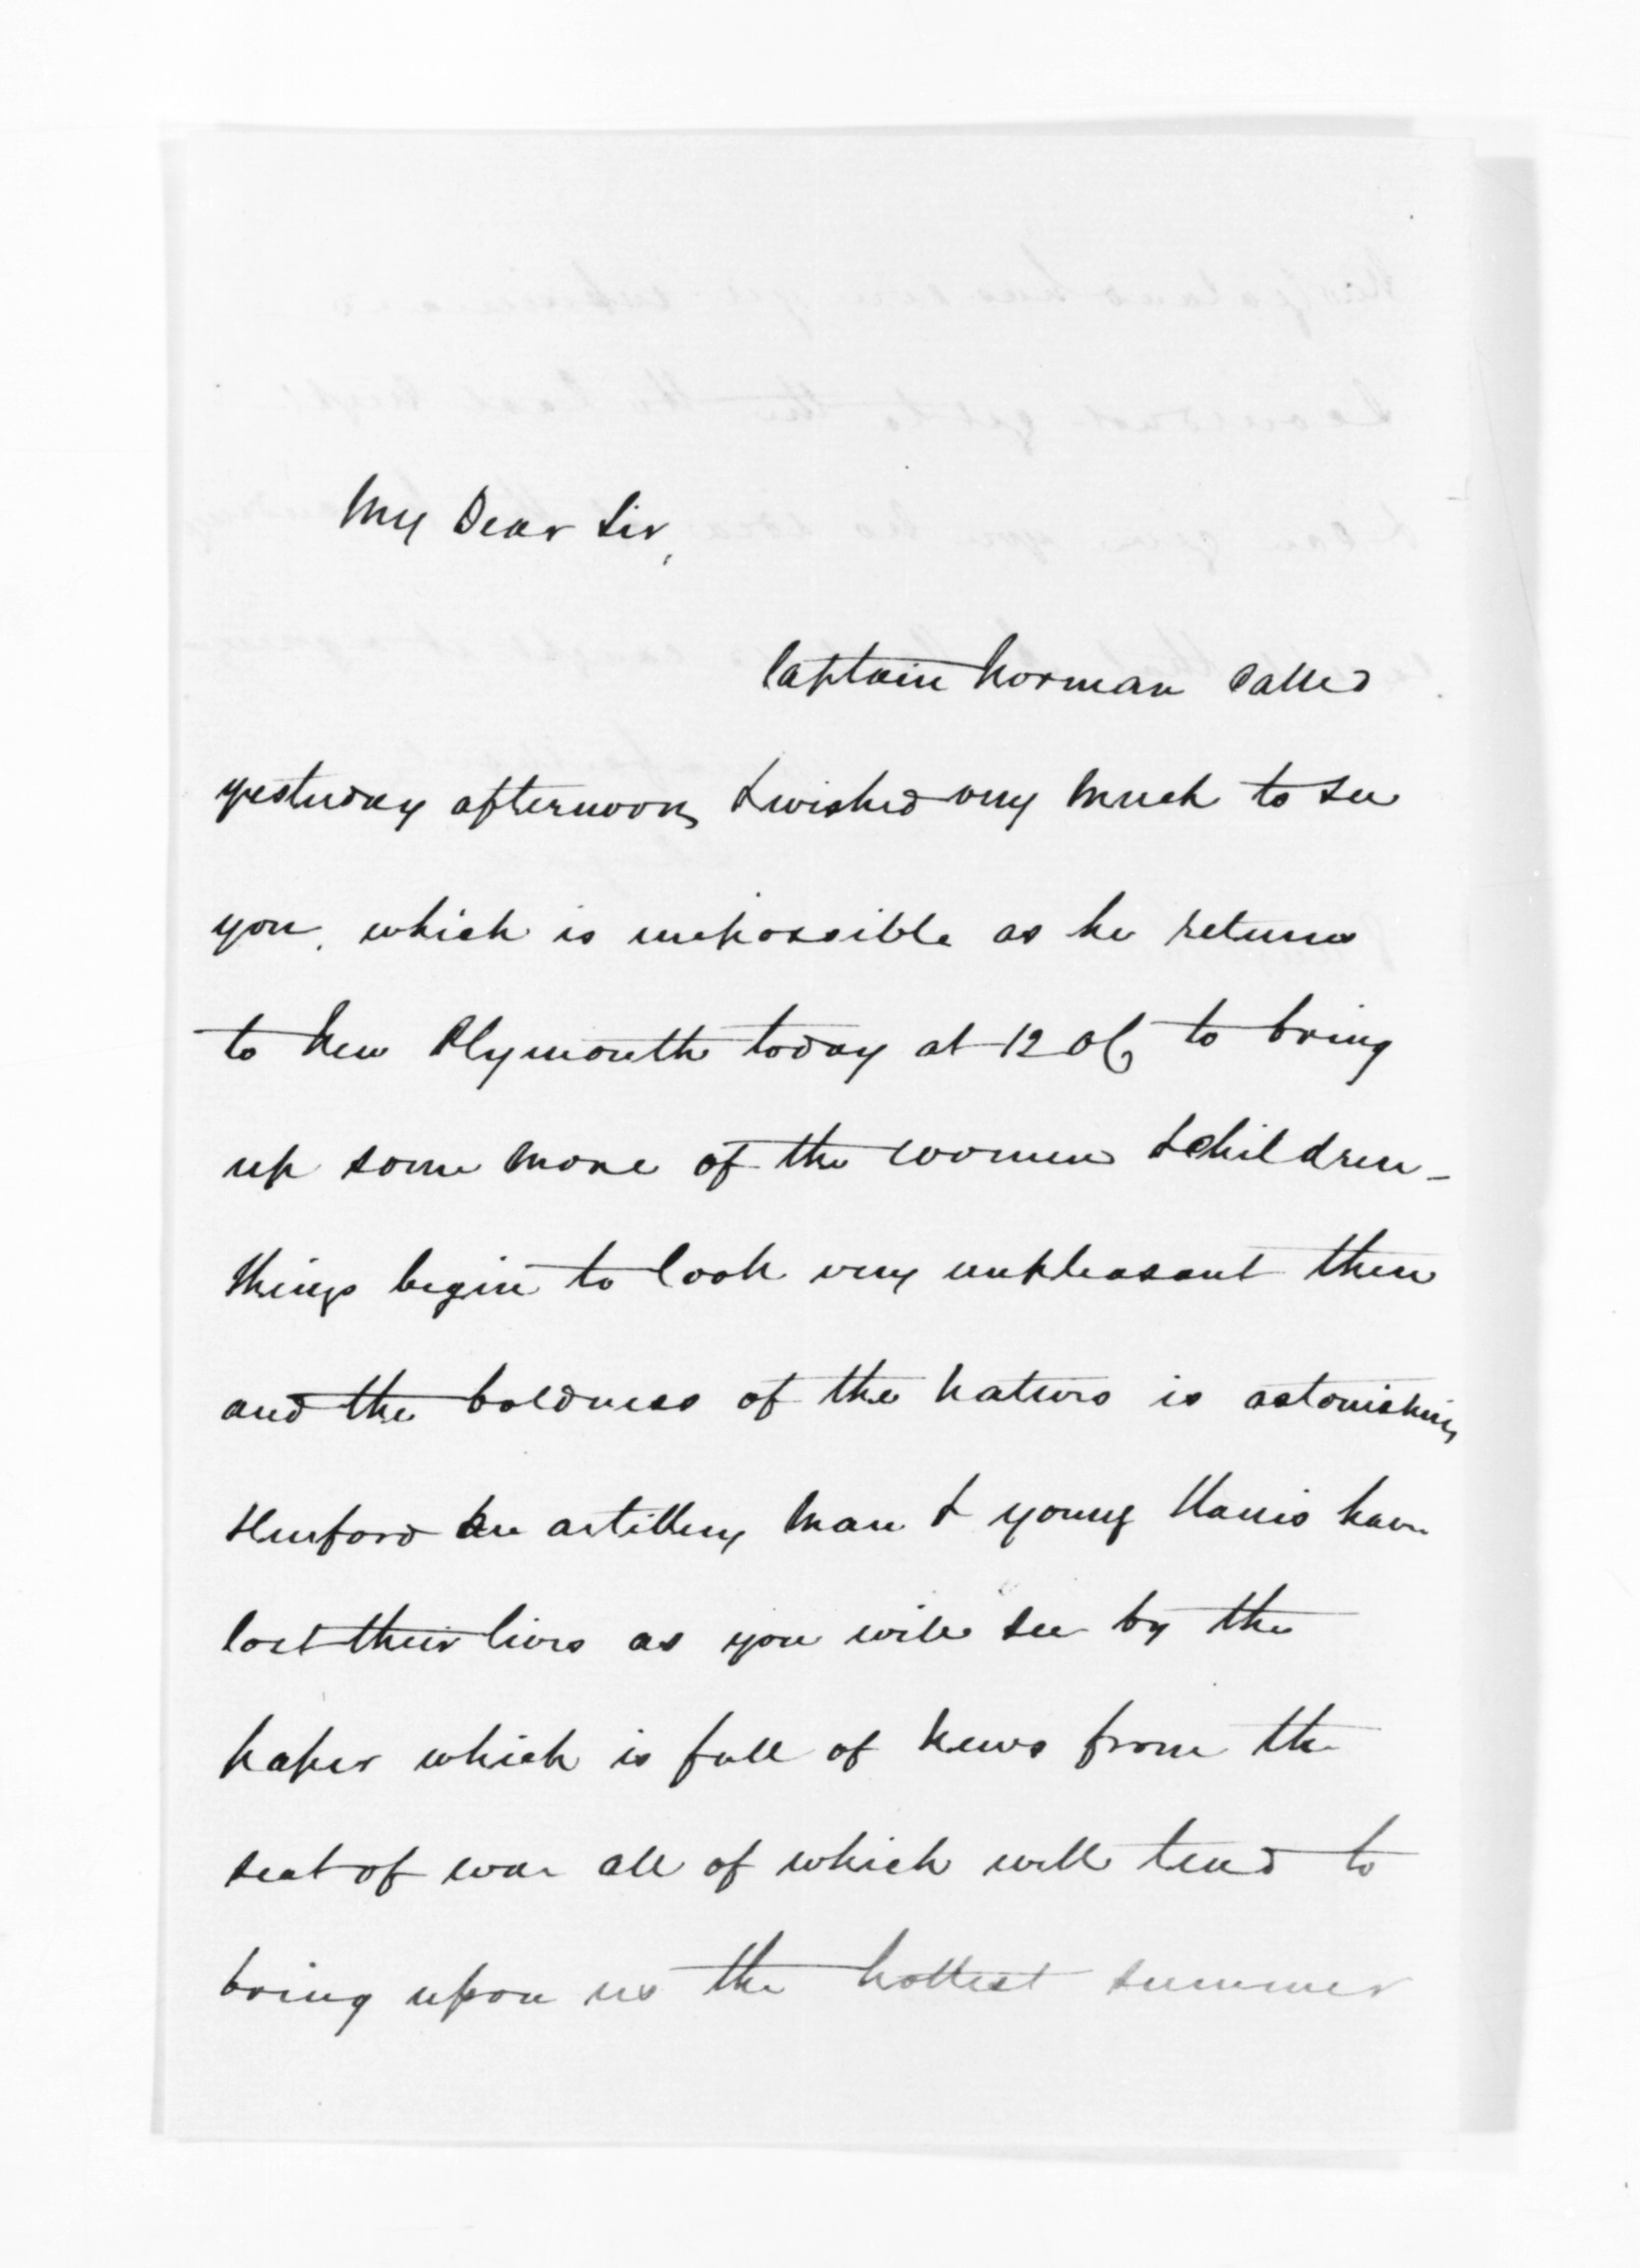 My Dear Sir,
Captain Norman called
yesterday afternoon, & wished very much to see
you, which is impossible as he returns
to New Plymouth today at 12 oC, to bring
up some more of the women & children _
things begin to look very unpleasant there
and the boldness of the natives is astonishing
Hurford an artillery man & young Harris have
lost their lives as you will see by the
paper which is full of news from the
seat of war all of which will tend to
bring upon us the hottest summer